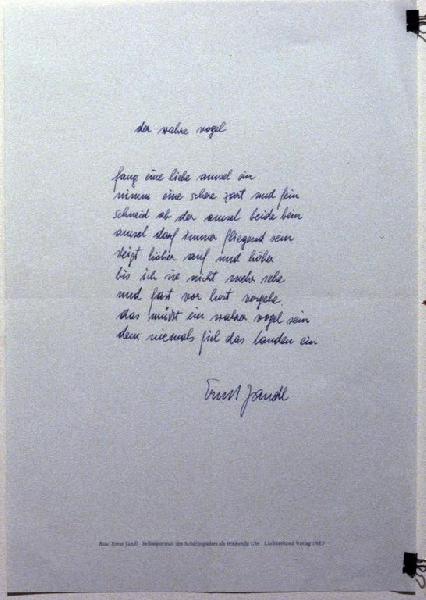 der wahre vogel
fang eine liebe amsel ein
nimm eine schere zart und fein
schneid ab der amsel beide bein
amsel darf immer fliegend sein
steigt höher auf und höher
bis ich sie nicht mehr sehe
und fast vor lust vergehe
das müßt ein wahrer vogel sein
dem niemals fiel das landen ein
Ernst Jandl
Aus: Ernst Jandl Selbstporträt des Schachspielers als trinkende Uhr Luchterhand Verlag 1983